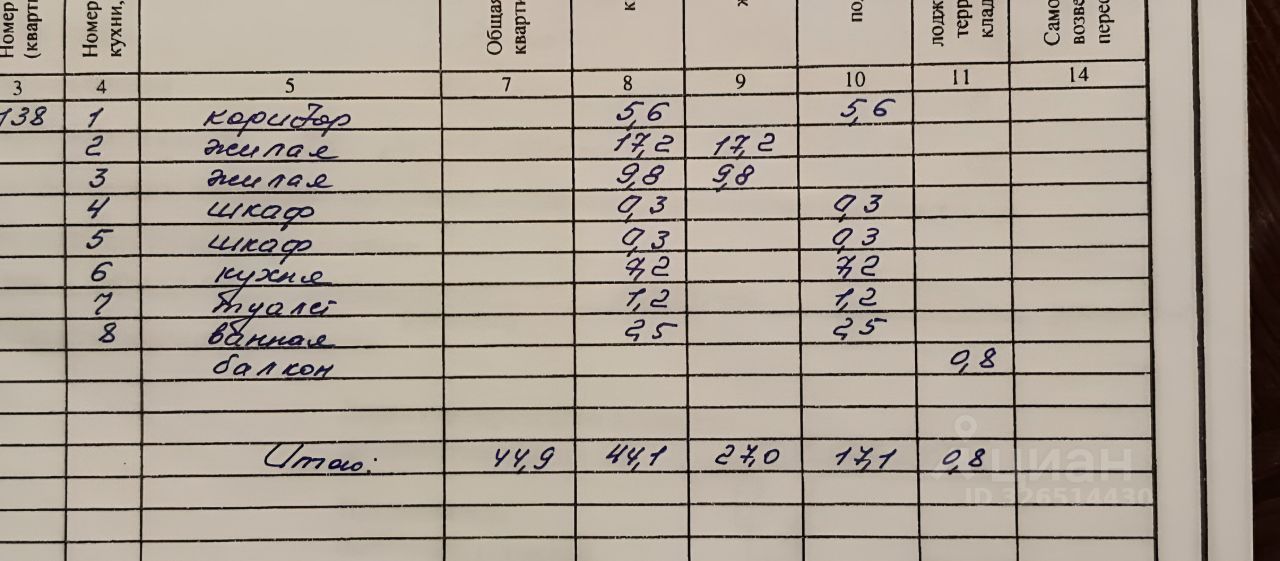 Номер
(кварти
Номер
кухни,
Общая
кварти
к
ж
по
лодж
терр
клад
Само
возве
перео
3 4 5 7 8 9 10 11 14
138 1 коридор 5,6 5,6
2 жилая 17,2 17,2
3 жилая 9,8 9,8
4 шкаф 0,3 0,3
5 шкаф 0,3 0,3
6 кухня 7,2 7,2
7 туалет 1,2 1,2
8 ванная 2,5 2,5
балкон 0,8
Итого: 44,9 44,1 27,0 17,1 0,8
циан
ID 326514430